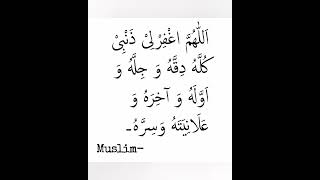 اَللّٰهُمَّ اغْفِرْلِیْ ذَنْبِیْ
كُلَّهُ دِقَّهُ وَ جِلَّهُ وَ
اَوَّلَهُ وَ آخِرَهُ وَ
عَلَانِيَتَهُ وَسِرَّهُ۔
Muslim-